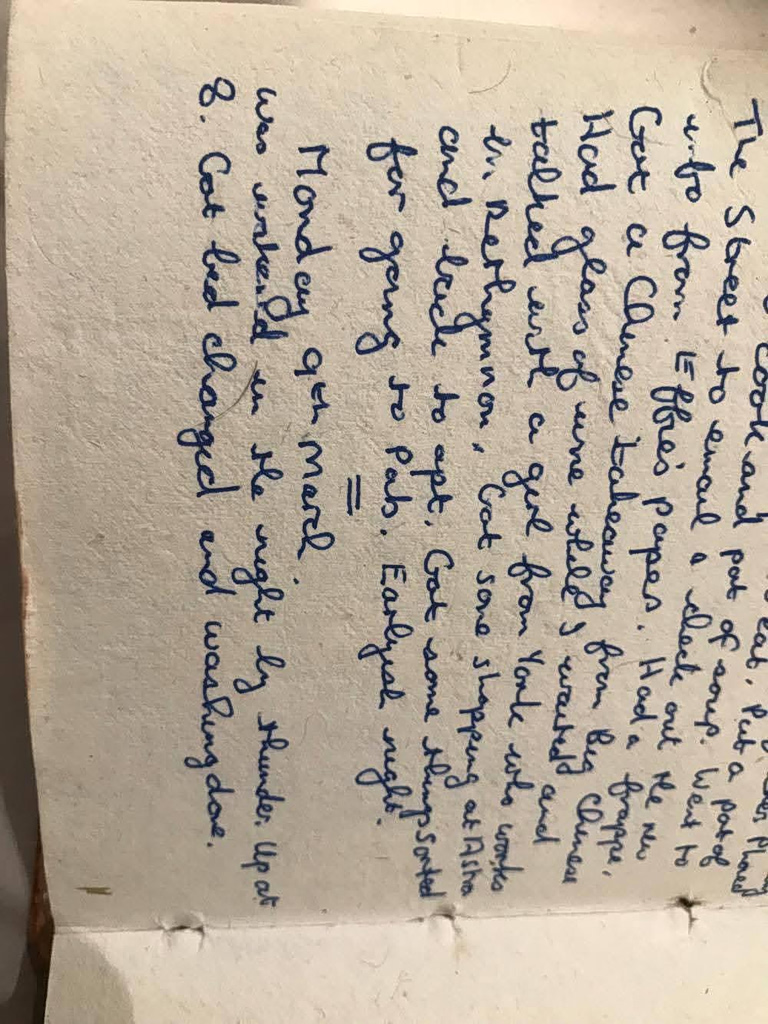 cook and pot of soup. Put a pot of
The Street to email & check out the new
info from Effie's papes. Had a frappe.
Got a Chinese takeaway from Big Chinese
Had glass of wine while I waited and
talked with a girl from York who works
in Rethymnon. Got some shopping at Asha
and back to apt. Got some things sorted
for going to Pats. Earlyish night.
=
Monday 9th March.
Was wakened in the night by thunder. Up at
8. Got bed changed and washing done.